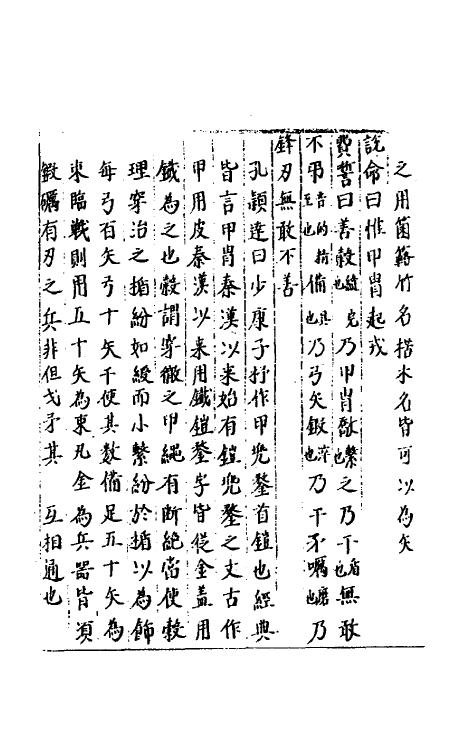 之用箘簵竹名楛木名皆可以為矢
說命曰惟甲冑起戎
費誓曰善敹縫完也乃甲冑敿繫也之乃干盾也無敢
不弔音的至也精備具也乃弓矢鍛淬也乃干矛礪磨也乃
鋒刃無敢不善
孔穎達曰少康子抒作甲兜鍪首鎧也經典
皆言甲冑秦漢以來始有鎧兜鍪之文古作
甲用皮秦漢以來用鐵鎧鍪字皆從金蓋用
鐵為之也敹謂穿徹之甲繩有斷絕當使敹
理穿治之楯紛如綬而小繫紛於楯以為飾
每弓百矢弓十矢千使其數備足五十矢為
束臨戰則用五十矢為束凡金為兵器皆須
鍛礪有刃之兵非但戈矛其 互相通也